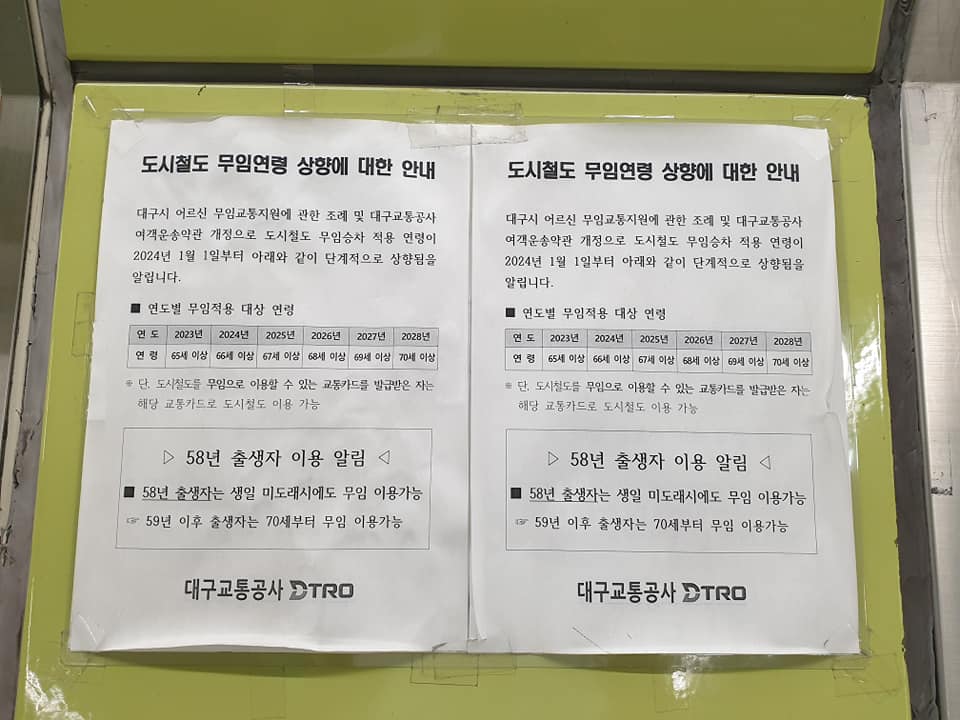 도시철도 무임연령 상향에 대한 안내
대구시 어르신 무임교통지원에 관한 조례 및 대구교통공사
여객운송약관 개정으로 도시철도 무임승차 적용 연령이
2024년 1월 1일부터 아래와 같이 단계적으로 상향됨을
알립니다.
■ 연도별 무임적용 대상 연령
연 도 2023년 2024년 2025년 2026년 2027년 2028년
연 령 65세 이상 66세 이상 67세 이상 68세 이상 69세 이상 70세 이상
※ 단, 도시철도를 무임으로 이용할 수 있는 교통카드를 발급받은 자는
해당 교통카드로 도시철도 이용 가능
▷ 58년 출생자 이용 알림 ◁
■ 58년 출생자는 생일 미도래시에도 무임 이용가능
☞ 59년 이후 출생자는 70세부터 무임 이용가능
대구교통공사 DTRO
도시철도 무임연령 상향에 대한 안내
대구시 어르신 무임교통지원에 관한 조례 및 대구교통공사
여객운송약관 개정으로 도시철도 무임승차 적용 연령이
2024년 1월 1일부터 아래와 같이 단계적으로 상향됨을
알립니다.
■ 연도별 무임적용 대상 연령
연 도 2023년 2024년 2025년 2026년 2027년 2028년
연 령 65세 이상 66세 이상 67세 이상 68세 이상 69세 이상 70세 이상
※ 단, 도시철도를 무임으로 이용할 수 있는 교통카드를 발급받은 자는
해당 교통카드로 도시철도 이용 가능
▷ 58년 출생자 이용 알림 ◁
■ 58년 출생자는 생일 미도래시에도 무임 이용가능
☞ 59년 이후 출생자는 70세부터 무임 이용가능
대구교통공사 DTRO